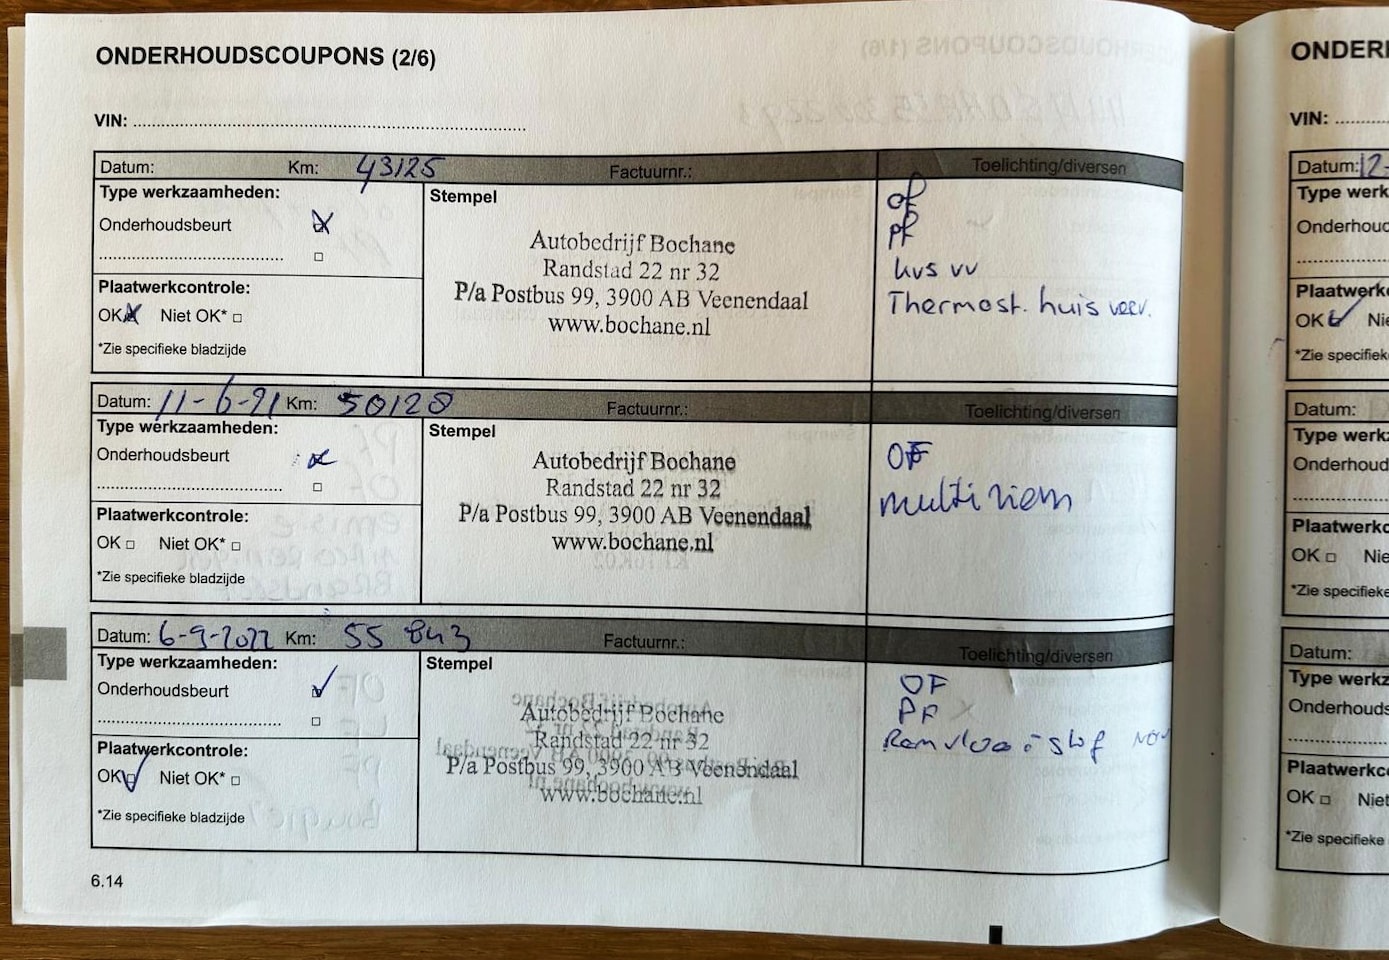 ONDERHOUDSCOUPONS (2/6)
VIN:
Datum: Km: 43125 Factuurnr.: Toelichting/diversen
Type werkzaamheden:
Onderhoudsbeurt
Plaatwerkcontrole:
OK Niet OK*
*Zie specifieke bladzijde
Stempel
Autobedrijf Bochane
Randstad 22 nr 32
P/a Postbus 99, 3900 AB Veenendaal
www.bochane.nl
OF
PF
Thermost. huis
Datum: 11-6-21 Km: 50128 Factuurnr.: Toelichting/diversen
Type werkzaamheden:
Onderhoudsbeurt
Plaatwerkcontrole:
OK Niet OK*
*Zie specifieke bladzijde
Stempel
Autobedrijf Bochane
Randstad 22 nr 32
P/a Postbus 99, 3900 AB Veenendaal
www.bochane.nl
OF
multiriem
Datum: 6-9-2022 Km: 55 843 Factuurnr.: Toelichting/diversen
Type werkzaamheden:
Onderhoudsbeurt
Plaatwerkcontrole:
OK Niet OK*
*Zie specifieke bladzijde
Stempel
Autobedrijf Bochane
Randstad 22 nr 32
P/a Postbus 99, 3900 AB Veenendaal
www.bochane.nl
OF
PF
6.14
VIN:
Datum:
OK
Datum:
OK
Datum:
OK